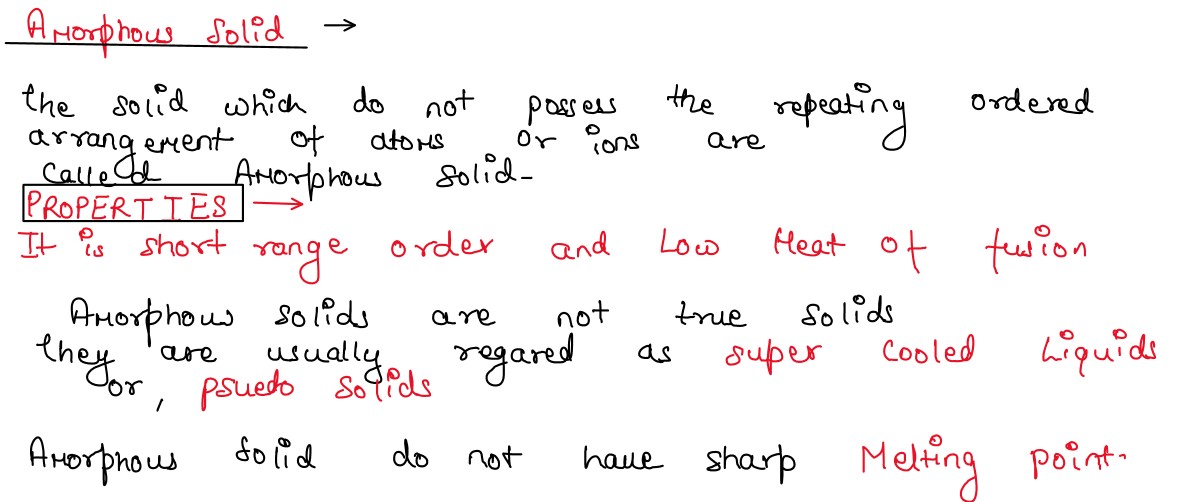 Amorphous Solid →
the solid which do not possess the repeating ordered
arrangement of atoms or ions are
called Amorphous Solid-
PROPERTIES →
It is short range order and Low Heat of fusion
Amorphous solids are not true solids
they are usually regared as super cooled Liquids
or, psuedo solids
Amorphous Solid do not have sharp Melting point.